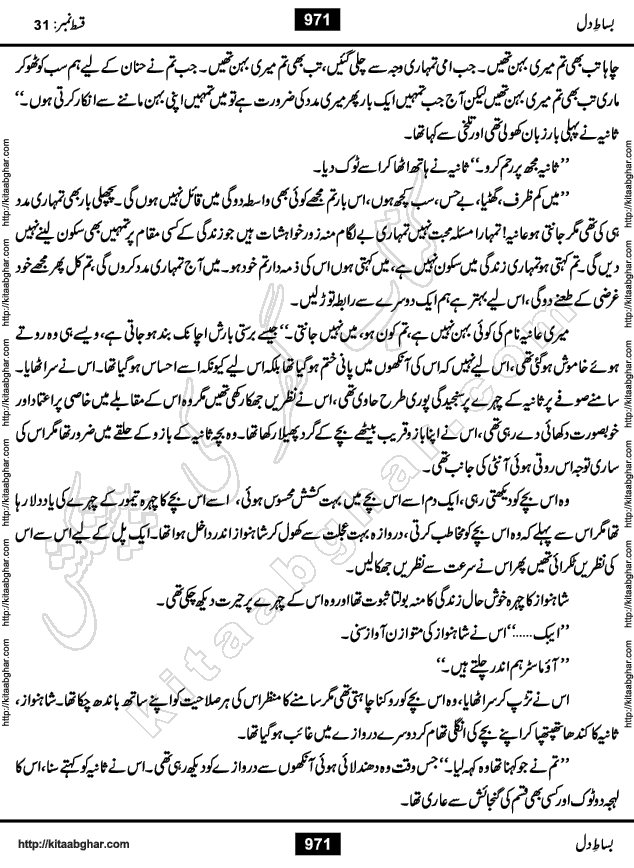 قسط نمبر: 31
971
بساطِ دل
چاہا تب بھی تم میری بہن تھیں۔ جب امی تمہاری وجہ سے چلی گئیں، تب بھی تم میری بہن تھیں۔ جب تم نے حنان کے لیے ہم سب کو ٹھوکر
ماری تب بھی تم میری بہن تھیں لیکن آج جب تمہیں ایک بار پھر میری مدد کی ضرورت ہے تو میں تمہیں اپنی بہن ماننے سے انکار کرتی ہوں۔‘‘
ثانیہ نے پہلی بار زبان کھولی تھی اور تلخی سے کہا تھا۔
’’ثانیہ مجھ پر رحم کرو۔‘‘ ثانیہ نے ہاتھ اٹھا کر اسے ٹوک دیا۔
’’میں کم ظرف، گھٹیا، بے حس، سب کچھ ہوں، اس بار تم مجھے کوئی بھی واسطہ دو گی میں قائل نہیں ہوں گی۔ پچھلی بار بھی تمہاری مدد
ہی کی تھی مگر جانتی ہو عانیہ! تمہارا مسئلہ محبت نہیں تمہاری بے لگام منہ زور خواہشات ہیں جو زندگی کے کسی مقام پر تمہیں بھی سکون لینے نہیں
دیں گی۔ تم کہتی ہو تمہاری زندگی میں سکون نہیں ہے، میں کہتی ہوں اس کی ذمہ دار تم خود ہو۔ میں آج تمہاری مدد کروں گی، تم کل پھر مجھے خود
غرضی کے طعنے دو گی، اس لیے بہتر ہے ہم ایک دوسرے سے رابطہ توڑ لیں۔
میری عانیہ نام کی کوئی بہن نہیں ہے، تم کون ہو، میں نہیں جانتی۔‘‘ جیسے برستی بارش اچانک بند ہو جاتی ہے، ویسے ہی وہ روتے
ہوئے خاموش ہو گئی تھی، اس لیے نہیں کہ اس کی آنکھوں میں پانی ختم ہو گیا تھا بلکہ اس لیے کیونکہ اسے احساس ہو گیا تھا۔ اس نے سر اٹھایا۔
سامنے صوفے پر ثانیہ کے چہرے پر سنجیدگی پوری طرح حاوی تھی، اس نے نظریں جھکا رکھی تھیں مگر وہ اس کے مقابلے میں خاصی پر اعتماد اور
خوبصورت دکھائی دے رہی تھی، اس نے اپنا بازو قریب بیٹھے بچے کے گرد پھیلا رکھا تھا۔ وہ بچہ ثانیہ کے بازو کے حلقے میں ضرور تھا مگر اس کی
ساری توجہ اس روتی ہوئی آنٹی کی جانب تھی۔
وہ اس بچے کو دیکھتی رہی، ایک دم اسے اس بچے میں بہت کشش محسوس ہوئی، اسے اس بچے کا چہرہ تیمور کے چہرے کی یاد دلا رہا
تھا مگر اس سے پہلے کہ وہ اس بچے کو مخاطب کرتی، دروازہ بہت عجلت سے کھول کر شاہنواز اندر داخل ہوا تھا۔ ایک پل کے لیے اس سے اس
کی نظریں ٹکرائی تھیں پھر اس نے سرعت سے نظریں جھکا لیں۔
شاہنواز کا چہرہ خوش حال زندگی کا منہ بولتا ثبوت تھا اور وہ اس کے چہرے پر حیرت دیکھ چکی تھی۔
’’ایبک......‘‘ اس نے شاہنواز کی متوازن آواز سنی۔
’’آؤ ماسٹر ہم اندر چلتے ہیں۔‘‘
اس نے تڑپ کر سر اٹھایا، وہ اس بچے کو روکنا چاہتی تھی مگر سامنے کا منظر اس کی ہر صلاحیت کو اپنے ساتھ باندھ چکا تھا۔ شاہنواز،
ثانیہ کا کندھا تھپتھپا کر اپنے بچے کی انگلی تھام کر دوسرے دروازے میں غائب ہو گیا تھا۔
’’تم نے جو کہنا تھا وہ کہہ لیا۔‘‘ جس وقت وہ دھندلائی ہوئی آنکھوں سے دروازے کو دیکھ رہی تھی۔ اس نے ثانیہ کو کہتے سنا، اس کا
لہجہ دو ٹوک اور کسی بھی قسم کی گنجائش سے عاری تھا۔
http://kitaabghar.com
http://kitaabghar.com
http://kitaabghar.com
http://kitaabghar.com
http://kitaabghar.com
http://kitaabghar.com
http://kitaabghar.com
http://kitaabghar.com
http://kitaabghar.com
http://kitaabghar.com
http://kitaabghar.com
http://kitaabghar.com
کتاب گھر کی پیشکش
kitaabghar.com
http://kitaabghar.com
971
بساطِ دل